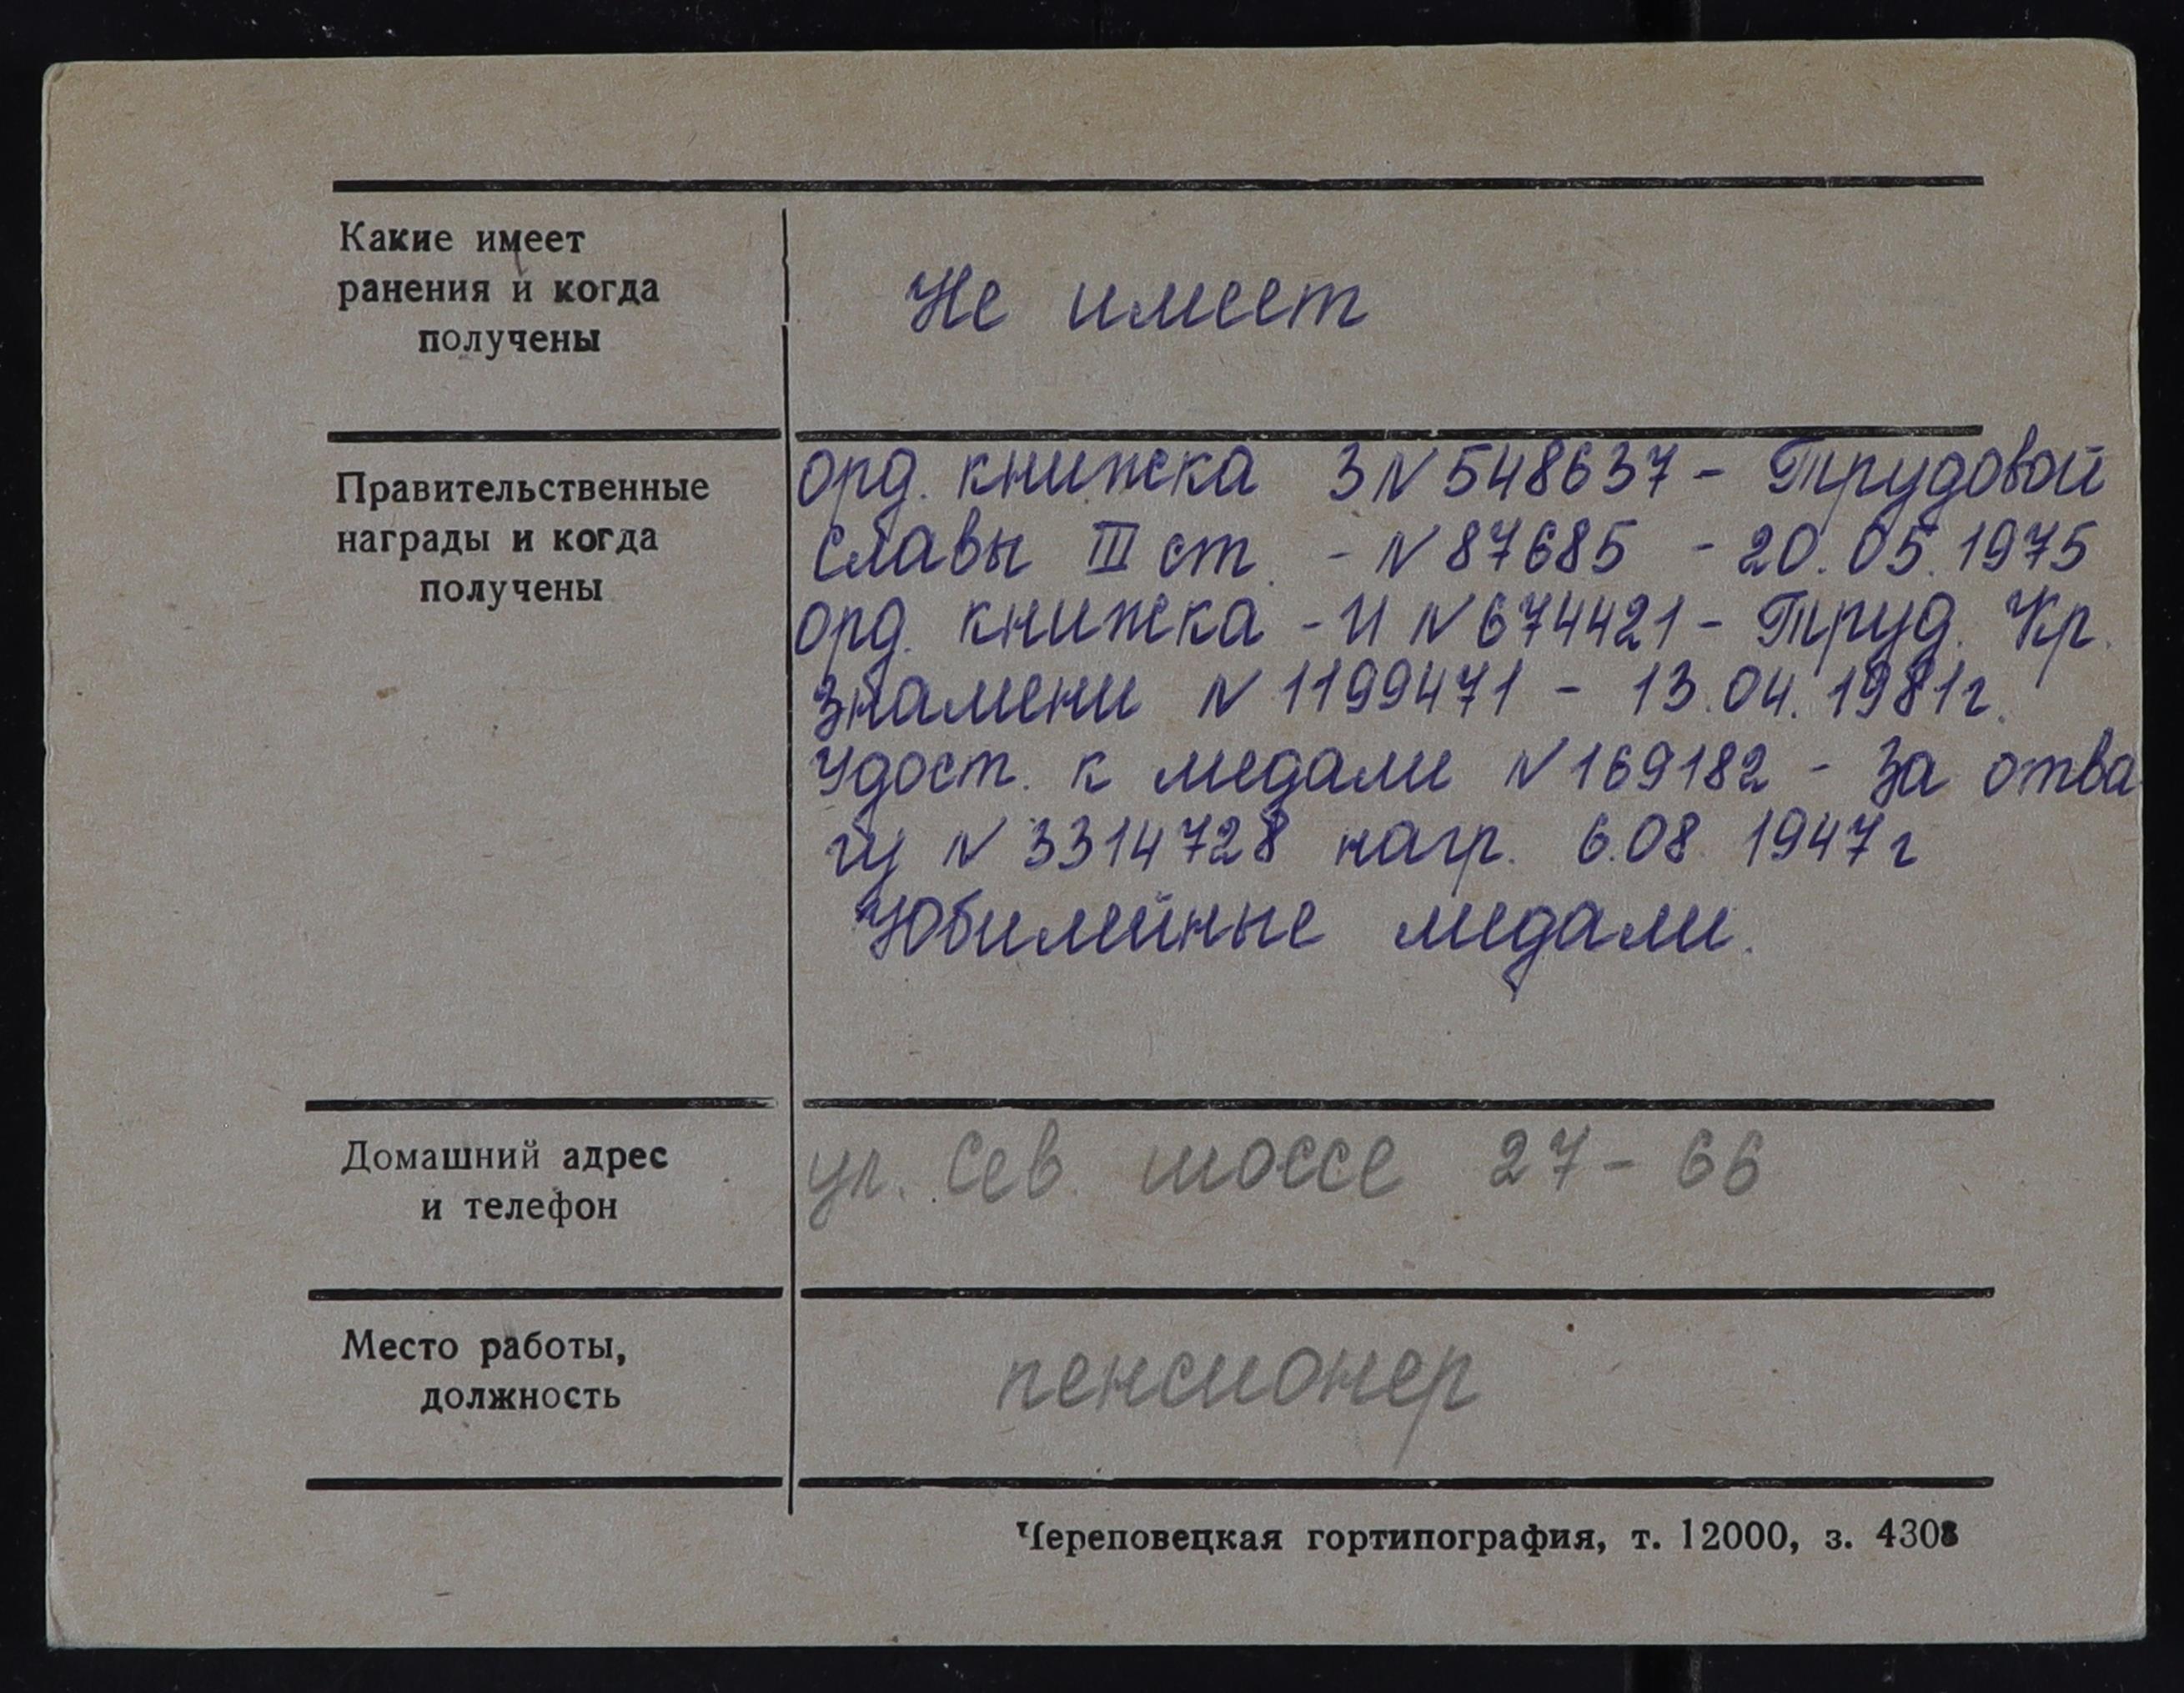 Какие имеет
ранения и когда
получены
Не имеет
Правительственные
награды и когда
получены
орд. книжка З N 548637 - Трудовой
славы III ст. - N 87685 - 20.05.1975
орд. книжка - И N 674421 - Труд. Кр.
Знамени N 1199471 - 13.04.1981г.
Удост. к медали N 169182 - За отва
гу N 3314728 нагр. 6.08 1947г
Юбилейные медали.
Домашний адрес
и телефон
ул. Сев. шоссе 27-66
Место работы,
должность
пенсионер
Череповецкая гортипография, т. 12000, з. 4308